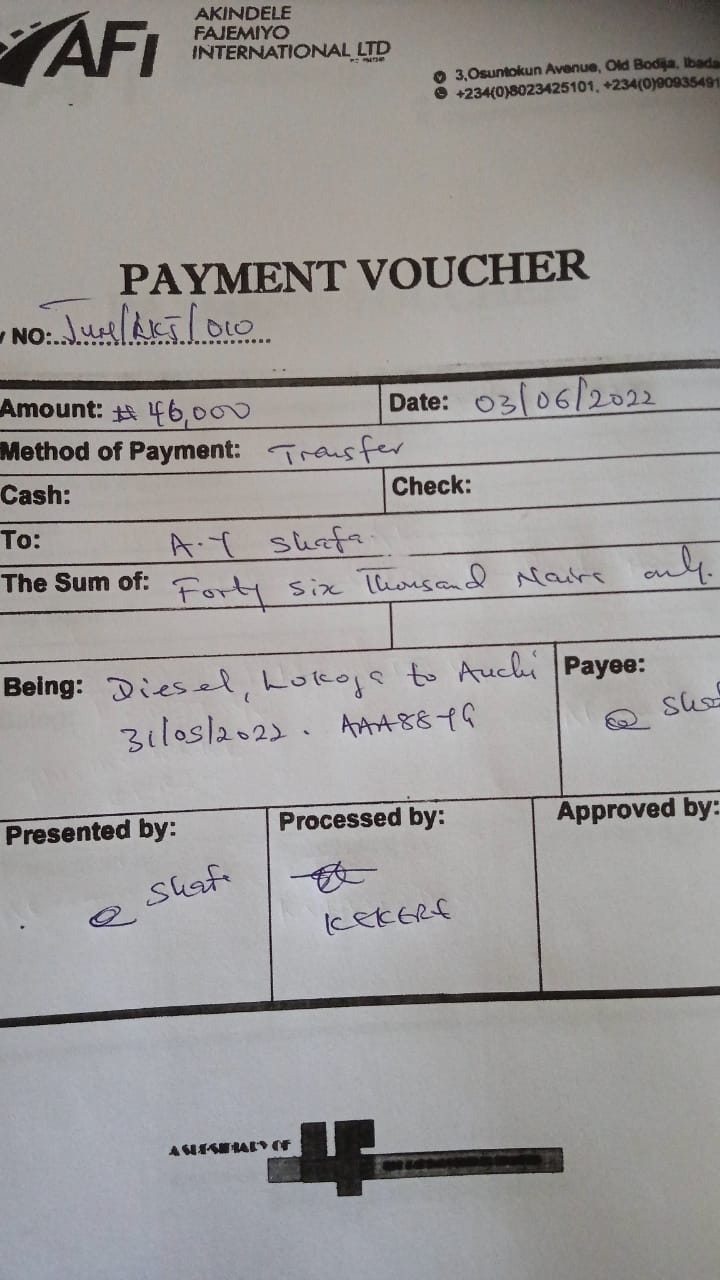 AFI
AKINDELE
FAJEMIYO
INTERNATIONAL LTD
3,Osuntokun Avenue, Old Bodija, Ibada
+234(0)8023425101, +234(0)90935491
PAYMENT VOUCHER
NO: June/AKI/010
Amount: ₦ 46,000 Date: 03/06/2022
Method of Payment: Transfer
Cash: Check:
To: A.Y Shafa
The Sum of: Forty six Thousand Naira only.
Being: Diesel, Lokoja to Auchi Payee:
31/05/2022. @ Sha
Presented by: Processed by: Approved by:
@ Shafa
KEKERE
A SUBSIDIARY OF